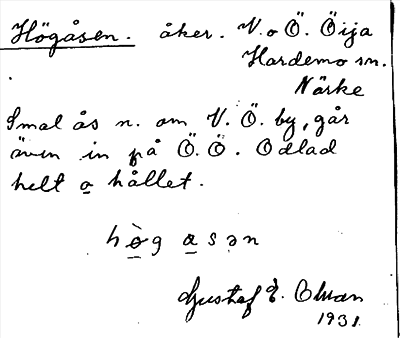 Högåsen. åker. V. o Ö. Öija
Hardemo sn.
Närke
Smal ås n. om V. Ö. by, går
även in på Ö. Ö. Odlad
helt o hållet.
hø̀g asən
Gustaf E. Ohlson
1931